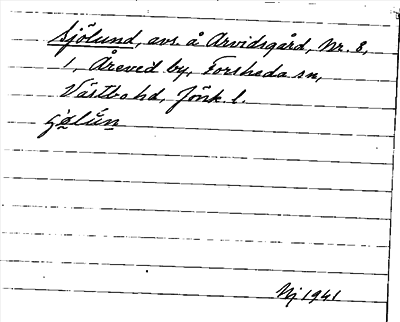 Sjölund, avs. å Arvidsgård, Nr. 8,
1, Åreved by, Forsheda sn,
Västbo hd, Jönk. l.
Nj 1941